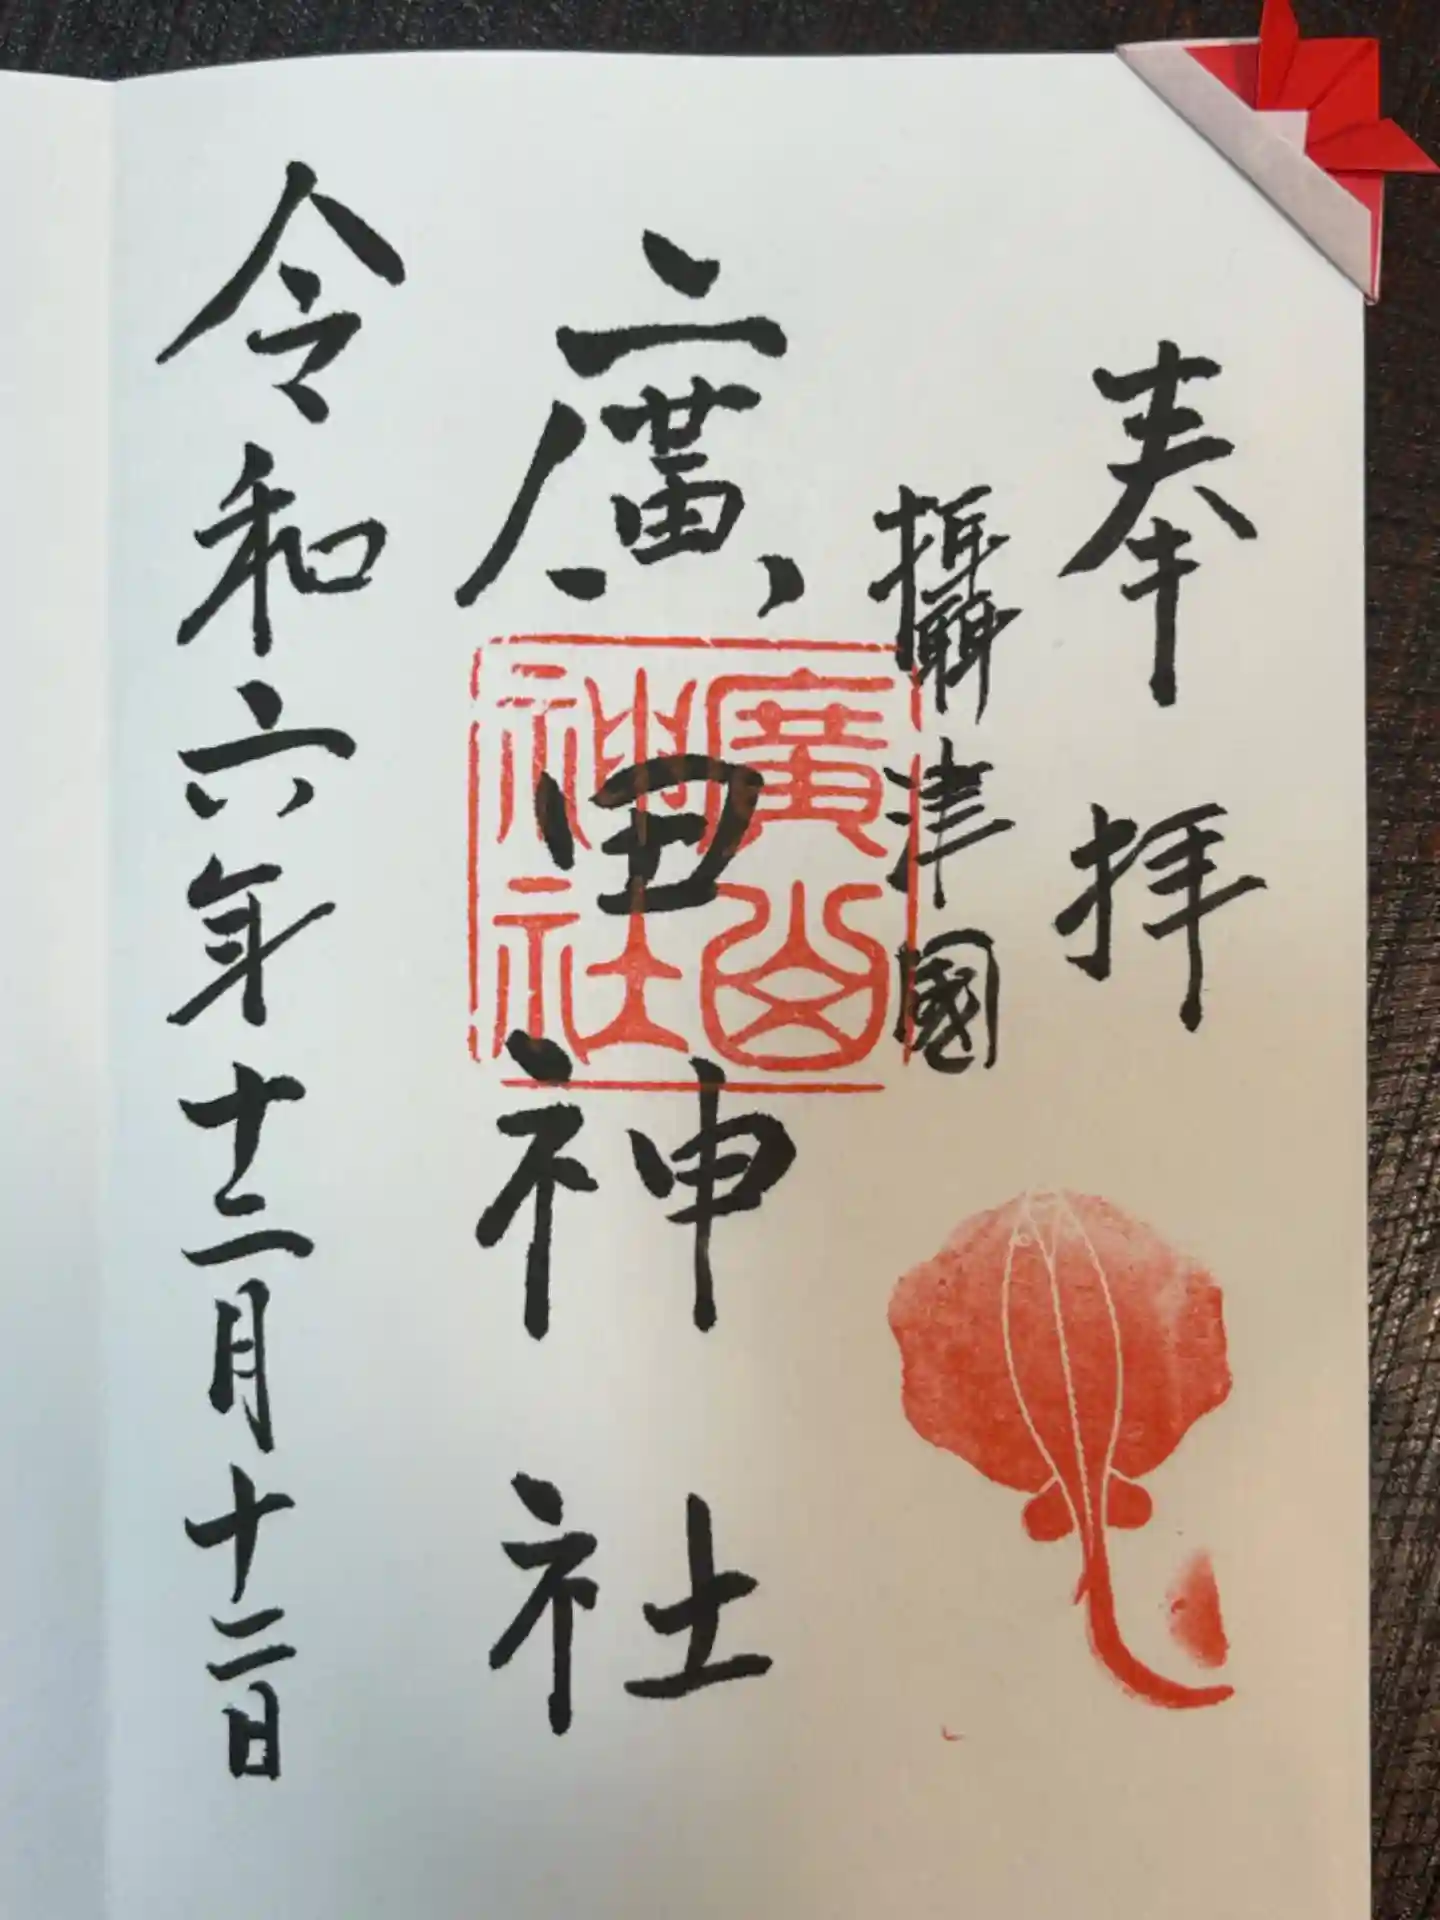 奉拝
攝津國
廣田神社
廣田神社
令和六年十二月十二日